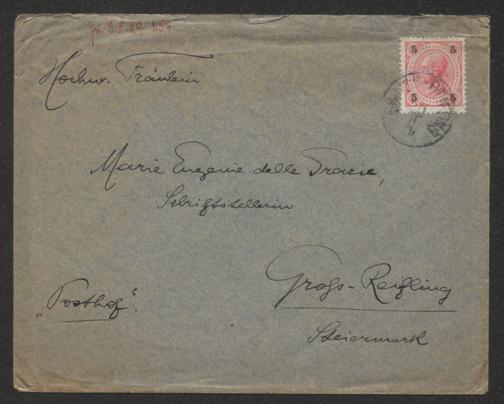 Hochw. Fräulein
5 5
5 5
Marie Eugenie delle Grazie,
Schriftstellerin
Groß-Reifling
„Posthof“.
Steiermark